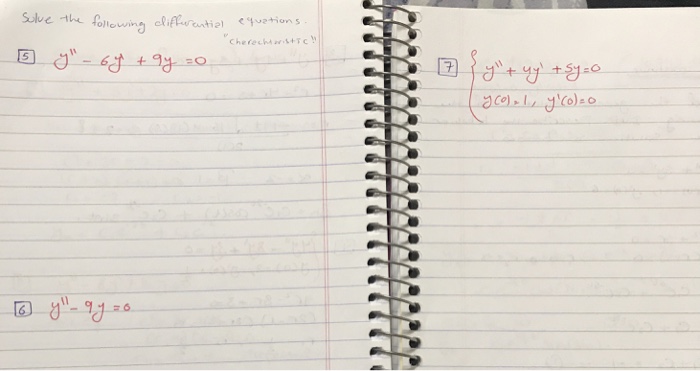 Solve the following differential equations.
"Characteristic"
5 y'' - 6y' + 9y = 0
6 y'' - 9y = 0
7 { y'' + 4y' + 5y = 0
y(0) = 1, y'(0) = 0